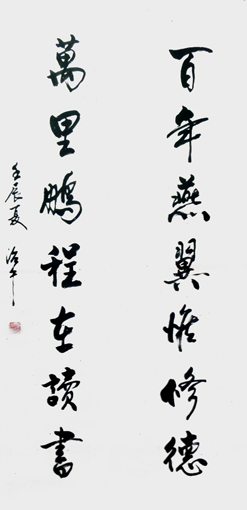 百年燕翼惟修德
萬里鹏程在讀書
壬辰夏